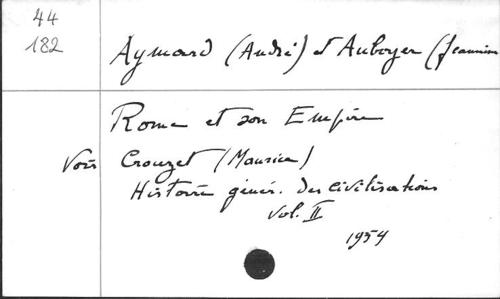 44
182
Aymard (André) et Auboyer (Jeannine
Rome et son Empire
Voir Crouzet (Maurice)
Histoire génér. des civilisations
Vol. II
1954